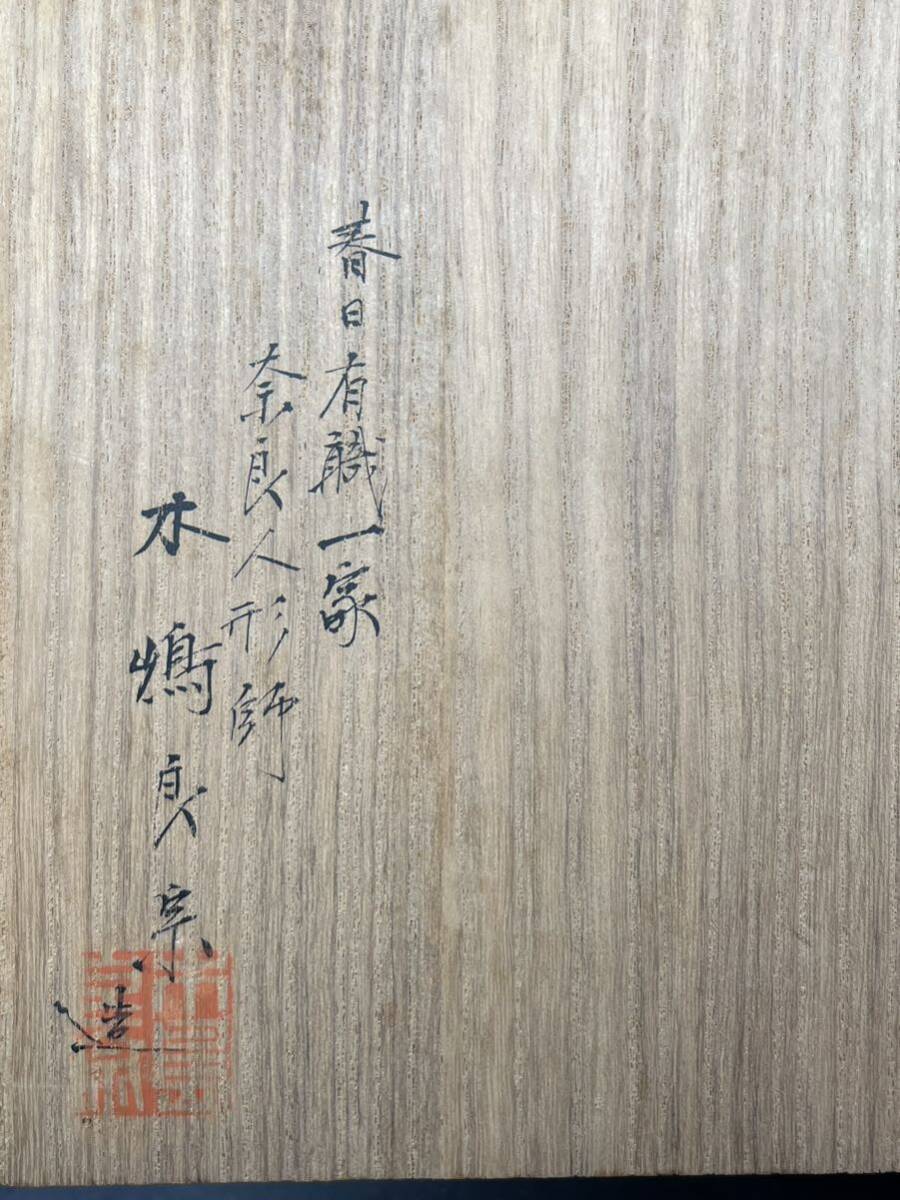 春日有職一家
奈良人形師
木嶋良宗
造